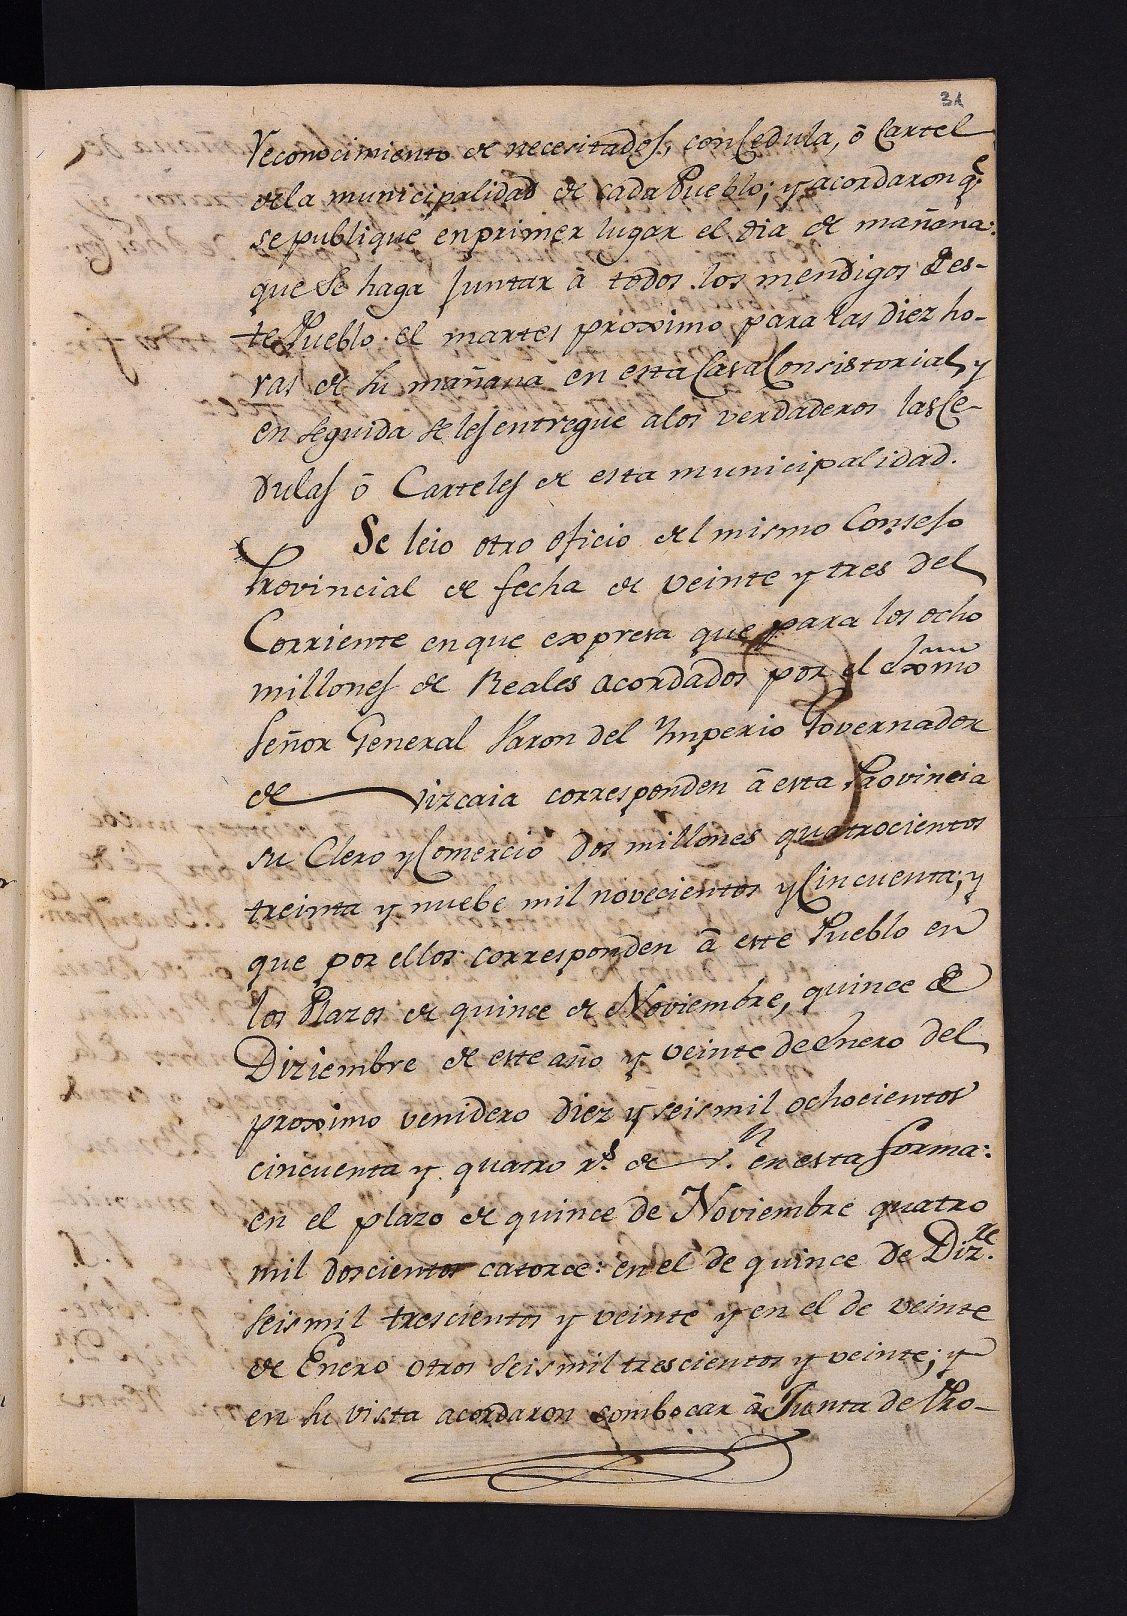 31
reconocimiento de necesitados, con Cedula, ó Cartel
de la municipalidad de cada Pueblo; y acordaron q.e
se publique en primer lugar el dia de mañana:
que se haga Juntar à todos los mendigos de es-
te Pueblo el martes proximo para las diez ho-
ras de su mañana en esta Casa Consistorial, y
en seguida se les entregue a los verdaderos las Ce-
dulas ó Carteles de esta municipalidad.
Se leio otro oficio del mismo Consejo
Provincial de fecha de veinte y tres del
Corriente en que expresa que para los ocho
millones de Reales acordados por el Exmo
Señor General Varon del Ymperio Governador
de Vizcaia corresponden à esta Provincia
su Clero y Comercio dos millones quatrocientos
treinta y nuebe mil novecientos y Cincuenta; y
que por ellos corresponden à este Pueblo en
los Plazos de quince de Noviembre, quince de
Diziembre de este año y veinte de Enero del
proximo venidero diez y seis mil ochocientos
cincuenta y quatro r.s de v.n en esta forma:
en el plazo de quince de Noviembre quatro
mil doscientos catorce: en el de quince de Diz.re
seis mil trescientos y veinte y en el de veinte
de Enero otros seis mil trescientos y veinte; y
en su vista acordaron combocar à Junta de Pro-